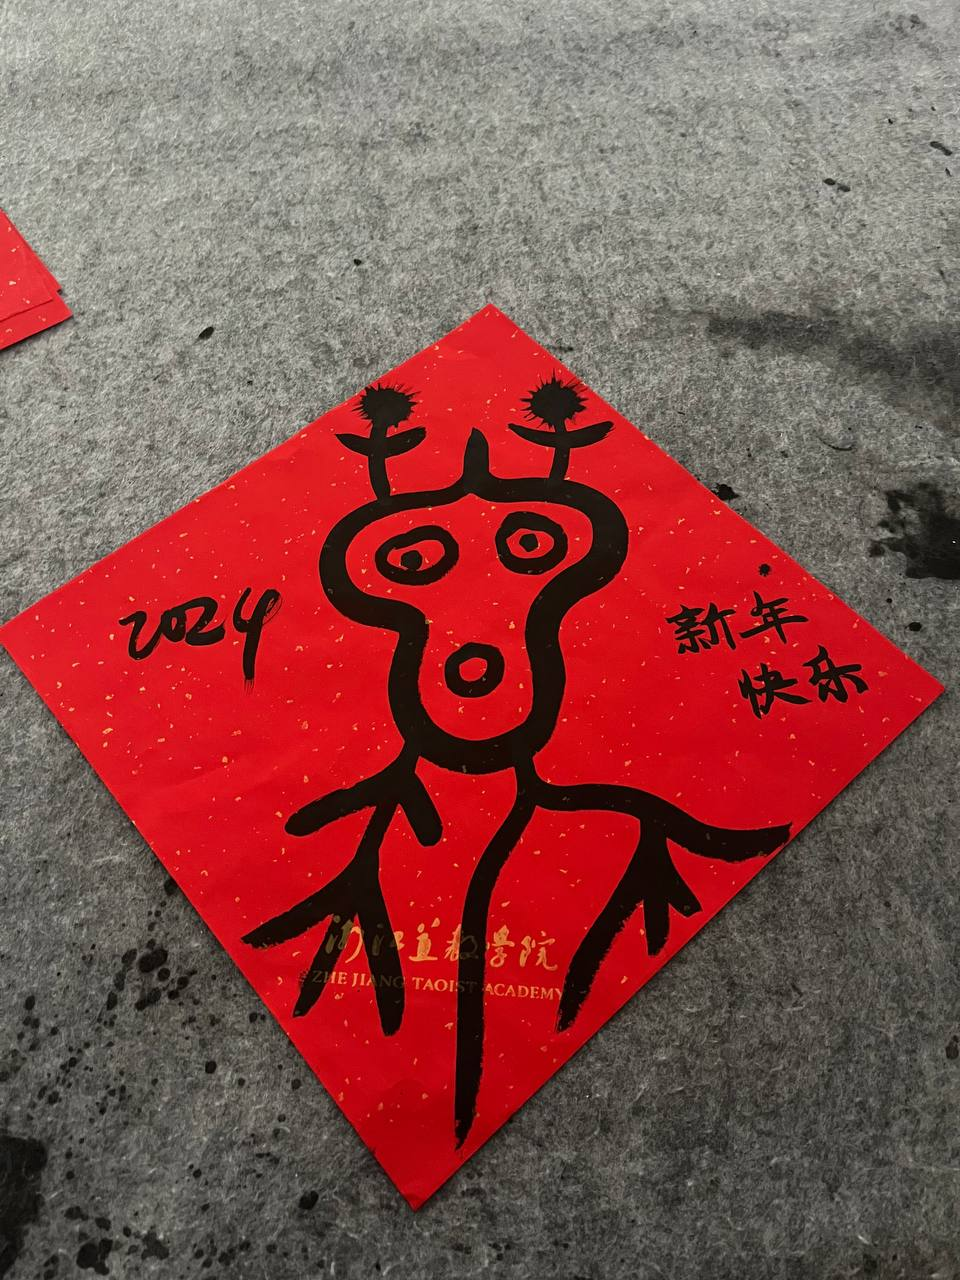 2024
新年
快乐
浙江道教学院
ZHE JIANG TAOIST ACADEMY